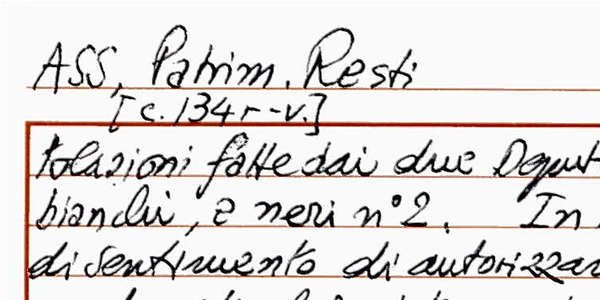 ASS, Patrim. Resti
[c. 134 r-v.]
tolazioni fatte dai due Deput
bianchi, e neri n° 2. In
di sentimento di autorizzar